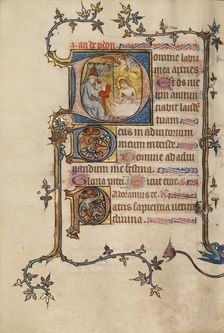 omine labia
mea aperies
Et os me
um annun
ciabit laude
tuam
eus in adiutorium
meum intende
Domine ad adiu
uandum me festina
Gloria patri Sicut erat
atris sapiencia verita
diuina